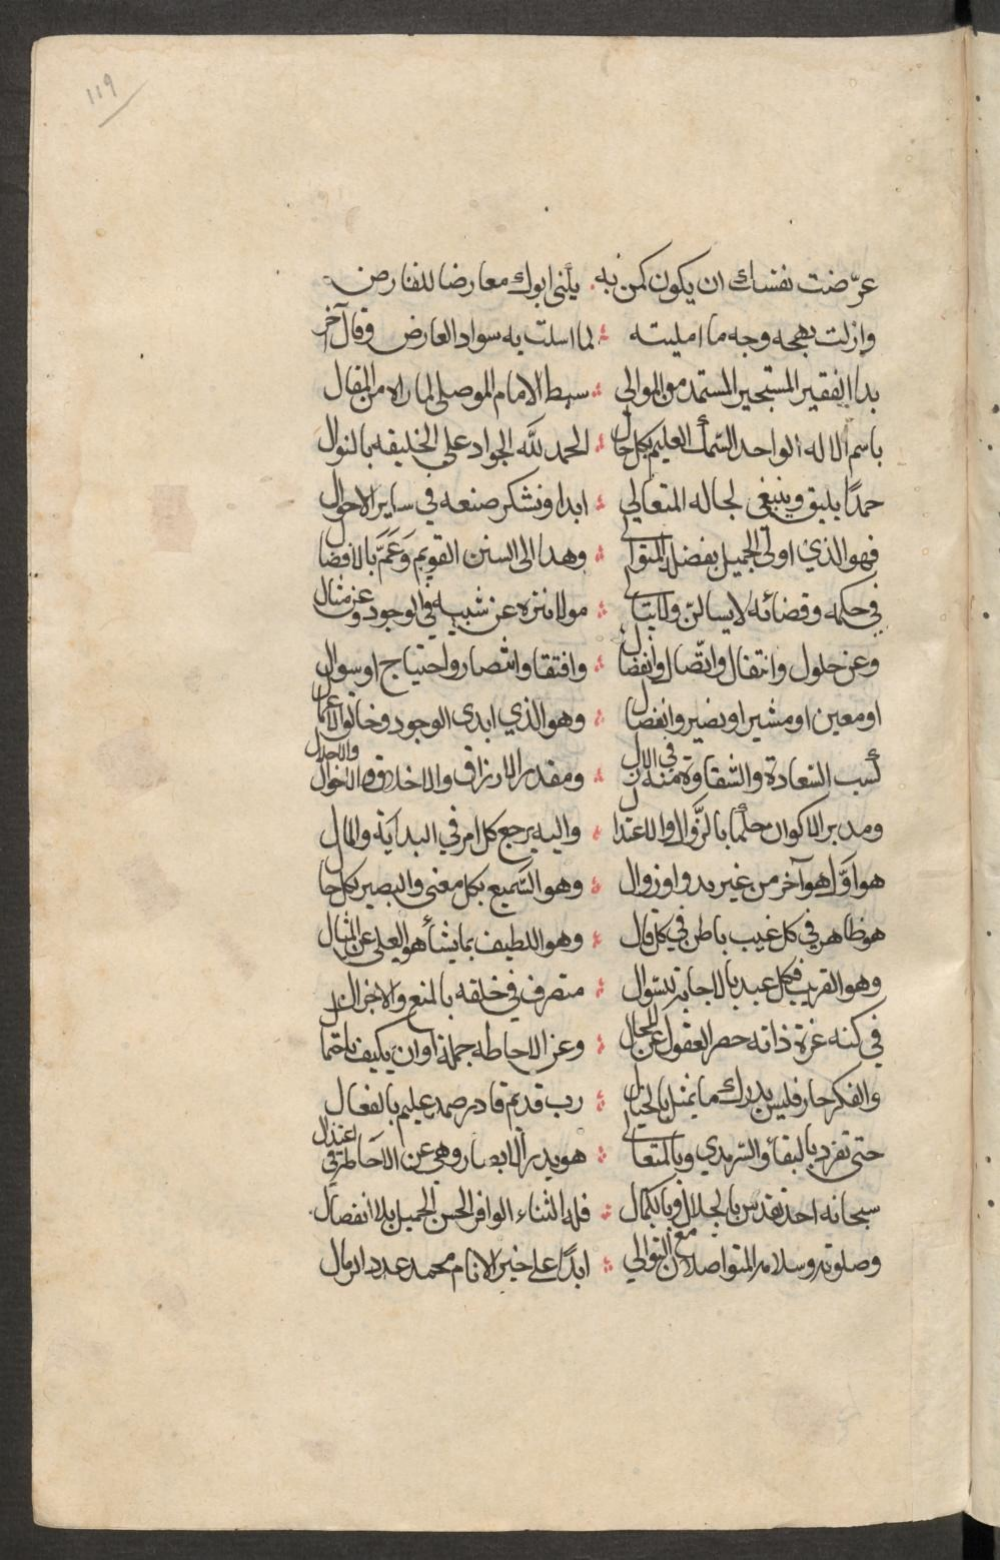 ١١٩
عرّضت نفسك ان يكون كمن به يلنى ابوك معارضا للفارض
وازلت بهجه وجه ما امليته لما اسلت به سواد العارض وقال آخر
بدا الفقير المستجير المستمد من الموالي سبط الامام الموصلي لما راه من المقال
باسم الاله الواحد العليم بكل حال الحمد لله الجواد على الخليقه بالنوال
حمدًا يليق وينبغي لجاله المتعالي ابدا ونشكر صنعه في ساير الاحوال
فهو الذي اولى الجميل بفضل المتوالي وهدا الى السنن القويم وَعَمَّ بالافضال
في حكمه وقضائه لا يسالن مولا تنزه عن شبيه في الوجود وعن مثال
وعن حلول وانتقال واتّصال وانفصال وافتقا وانتصار واحتياج او سوال
او معين او مشير او نصير وانفصال وهو الذي ابدى الوجود وخالق الاعمال
كسب السعادة والشقاوة منه في الازال ومقدر الارزاق والاخلاق والاحوال والاجال
ومدبر الاكوان حلما بالزَّوال والاعتدال واليه يرجع كل امر في البداية والمال
هو اوّل هو آخر من غير بدو او زوال وهو السَّميع بكل معنى والبصير بكل حال
هو ظاهر في كل غيب باطن في كل قال وهو اللطيف بما يشأ هو العلى عن المثال
وهو القريب فكل عبد بالاجابة للسوال متصرف في خلقه بالمنع والاجزال
في كنه عزة ذاته حصر العقول عن المجال وعن الاحاطه جملة او ان يكيف باحتمال
والفكر حار فليس يدرك ما يمثل بالخيال رب قديم قادر صمد عليم بالفعال
حتى تفرد بالبقا والسرمدي وبالمتعالي هو يدرك الابصار وهي عن
سبحانه احد تقدس بالجلال وبالكمال فله الثناء الوافر الحسن الجميل بلا انفصال
وصلوته وسلامه المتواصلان مع التوالي ابدًا على خير الانام محمد عدد الرمال